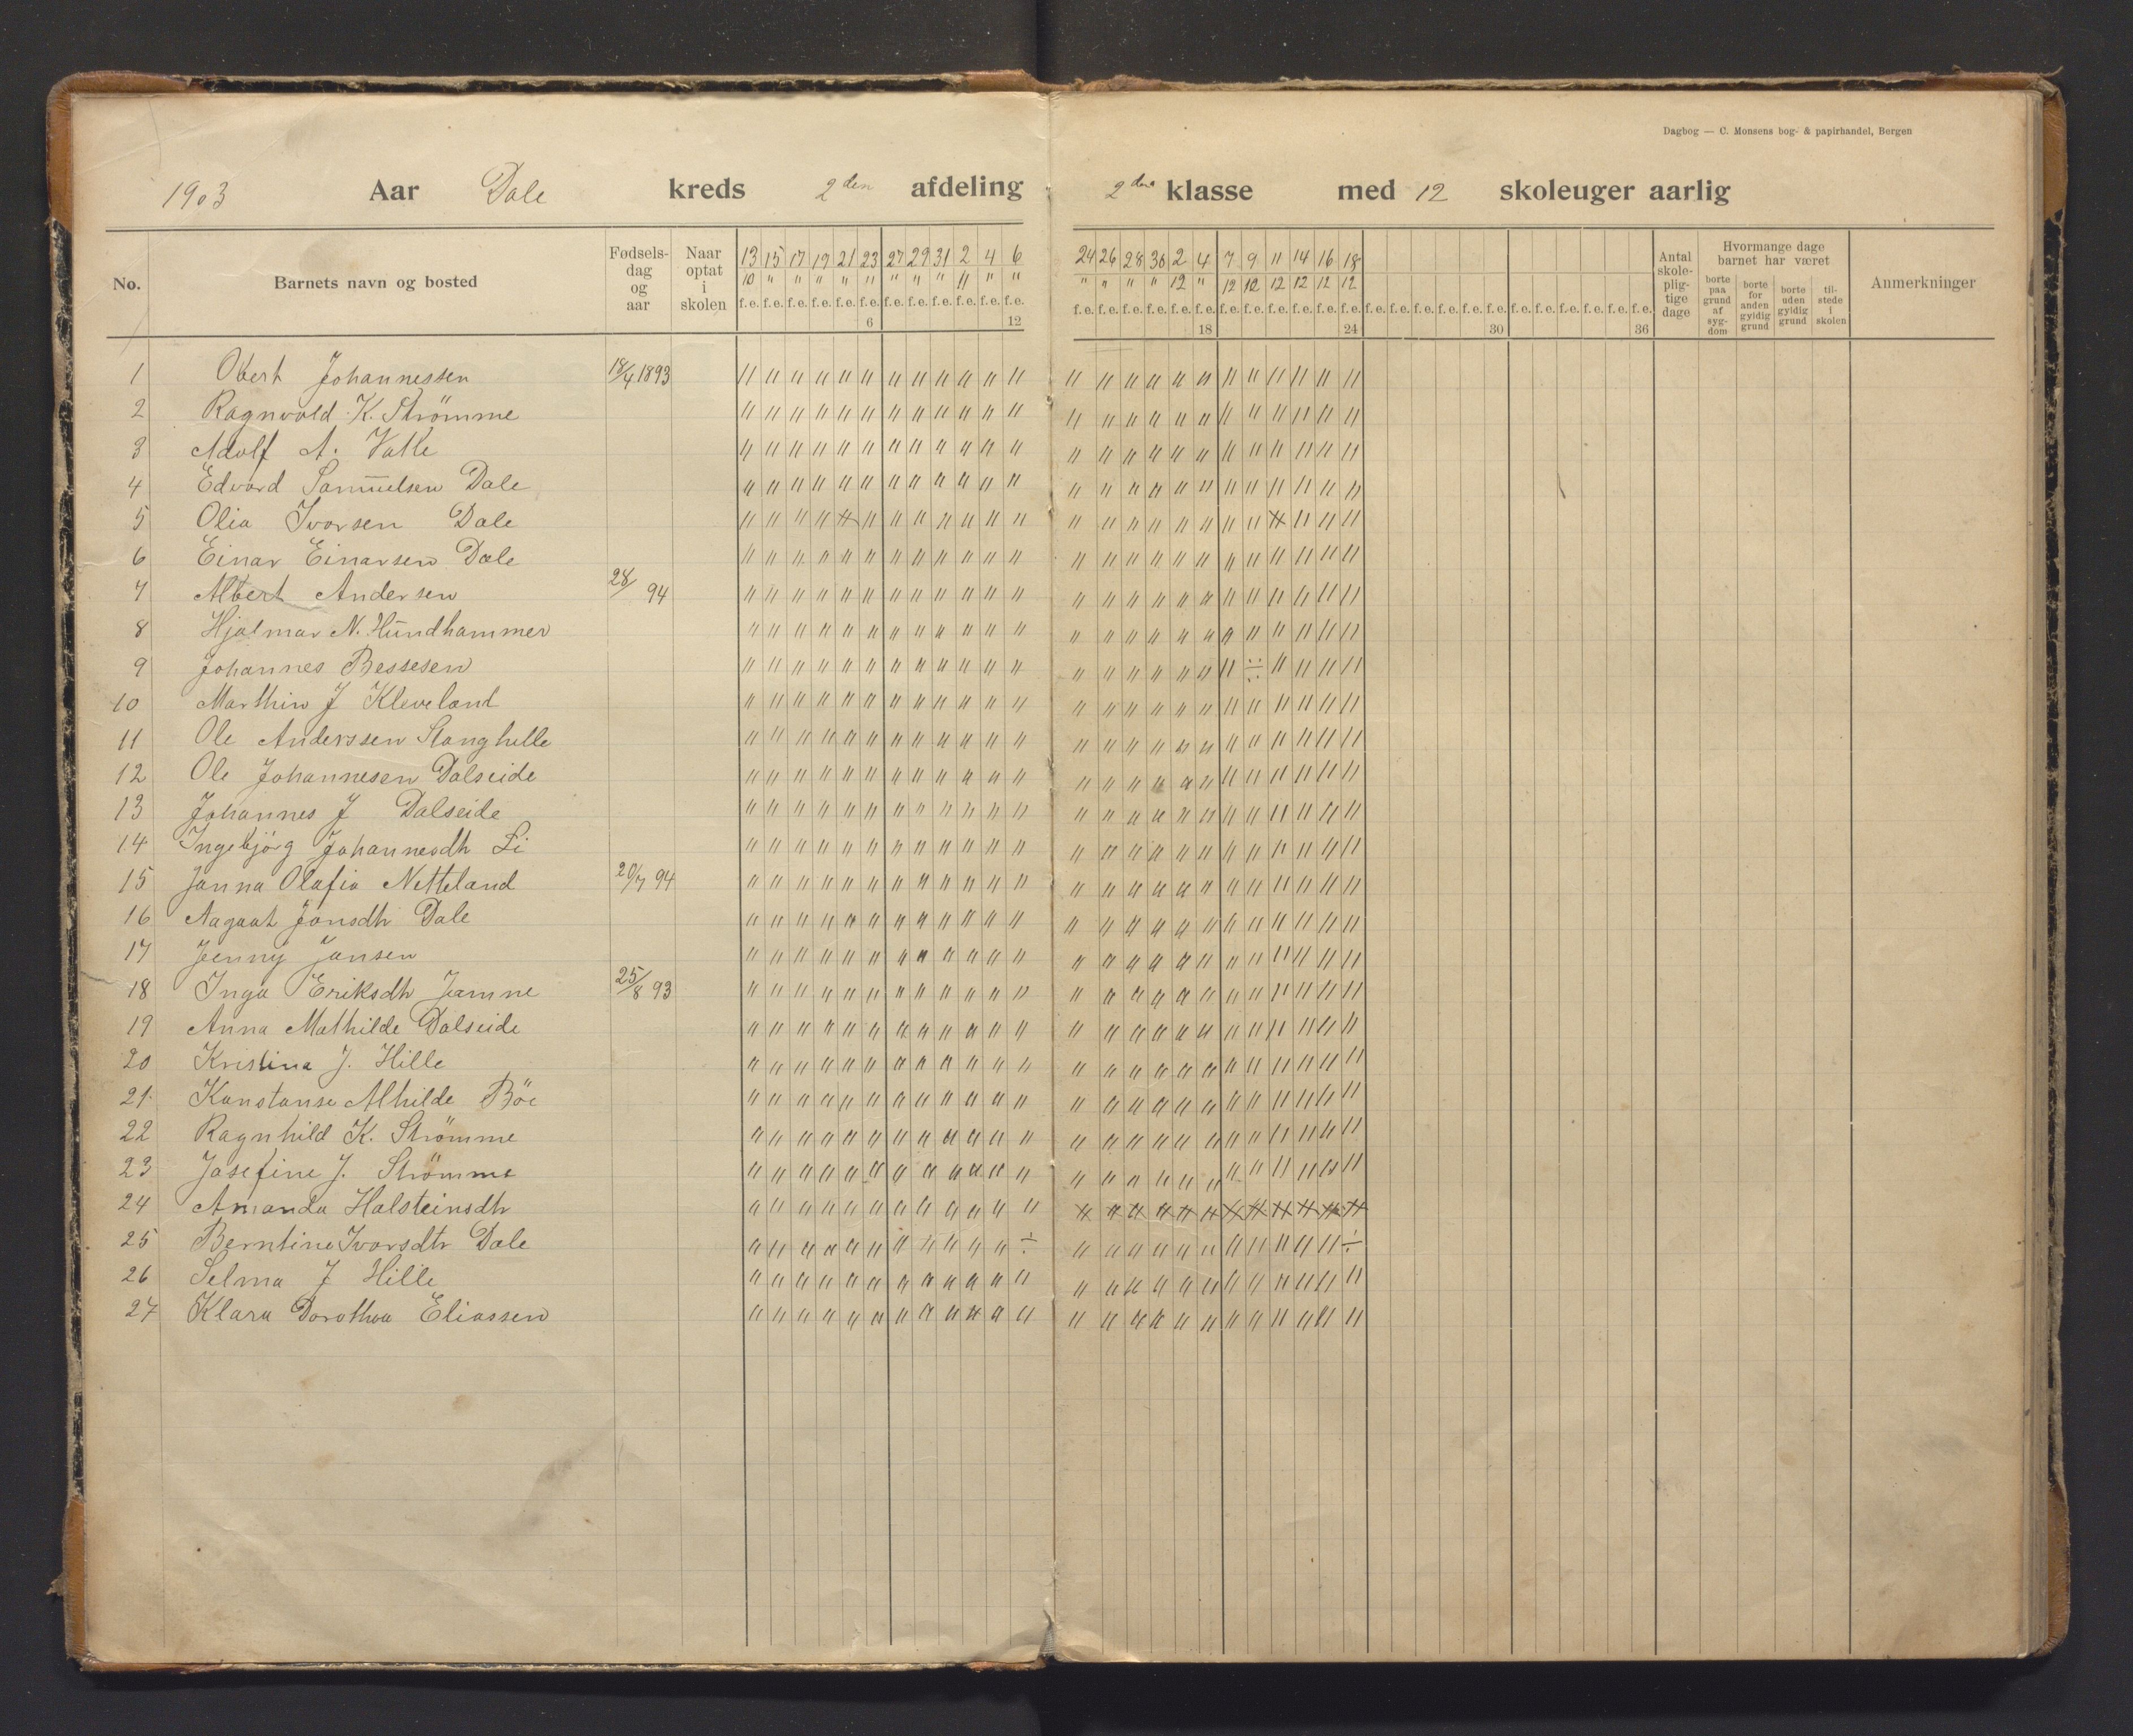 Dagbog — C. Monsens bog- & papirhandel, Bergen
1903 Aar Dale kreds 2den afdeling 2den klasse med 12 skoleuger aarlig
No. Barnets navn og bosted Fødsels-dag og aar Naar optat i skolen 13 15 17 19 21 23 27 29 31 2 4 6 24 26 28 30 2 4 7 9 11 14 16 18 Antal skole-plig-tige dage Hvormange dage barnet har været Anmerkninger
10 " " " " " " " " 11 " " " " " " 12 " 12 12 12 12 12 12 borte paa grund af syg-dom borte for anden gyldig grund borte uden gyldig grund til-stede i skolen
f. e. f. e. f. e. f. e. f. e. f. e. f. e. f. e. f. e. f. e. f. e. f. e. f. e. f. e. f. e. f. e. f. e. f. e. f. e. f. e. f. e. f. e. f. e. f. e. f. e. f. e. f. e. f. e. f. e. f. e. f. e. f. e. f. e. f. e. f. e. f. e.
6 12 18 24 30 36
1 Obert Johannessen 18/4 1893
2 Ragnvald K. Strømme
3 Adolf A. Vatle
4 Edvard Samuelsen Dale
5 Olia Ivarsen Dale
6 Einar Einarsen Dale
7 Albert Andersen 28/ 94
8 Hjalmar N. Hundhammer
9 Johannes Bessesen
10 Marthin J Kleveland
11 Ole Anderssen Stanghelle
12 Ole Johannesen Dalseide
13 Johannes J Dalseide
14 Ingebjörg Johannesdtr Li
15 Janna Olafia Netteland 20/7 94
16 Aagaat Jonsdtr Dale
17 Jenny Jansen
18 Inga Eriksdtr Jamne 25/8 93
19 Anna Mathilde Dalseide
20 Kristina J. Hille
21 Konstanse Alhilde Böe
22 Ragnhild K. Strömme
23 Josefine J. Strömme
24 Amanda Halsteinsdtr
25 Berntine Ivarsdtr Dale
26 Selma J Hille
27 Klara Dorothea Eliassen